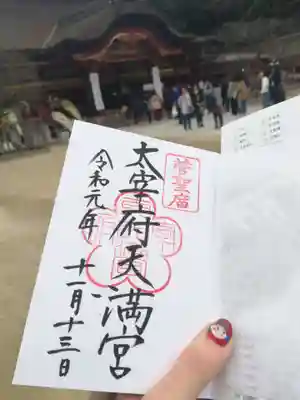 菅聖廟
太宰府天満宮
令和元年
十一月十三日